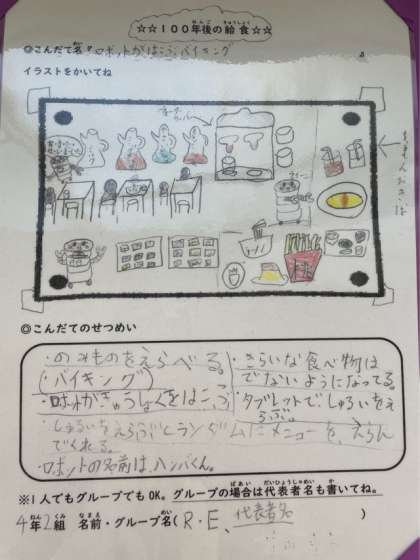 ☆☆100年後の給食☆☆
ねんご きゅうしょく
◎こんだて名 ロボットがはこぶバイキング
イラストをかいてね
◎こんだてのせつめい
・のみものをえらべる。
(バイキング)
・ロボットがきゅうしょくをはこぶ
・しゅるいをえらぶとランダムにメニューを、えらんでくれる。
・ロボットの名前は、ハンバくん。
・きらいな食べ物はでないようになってる。
・タブレットでしゅるいをえらぶ。
※1人でもグループでもOK。グループの場合は代表者名も書いてね。
ばあい だいひょうしゃめい か
4年2組 名前・グループ名(R・E、代表者名 )
ねん くみ なまえ めい